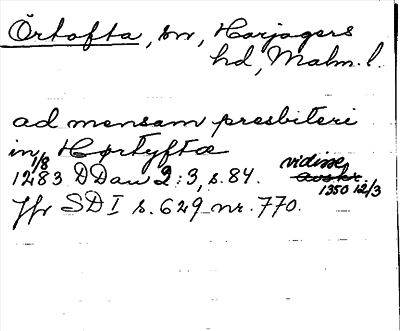 Örtofta, sn, Harjagers
hd, Malm. l.
ad mensam presbiteri
in Hørtyftæ
1/8
1283 DDan 2:3, s. 84. vidisse
avskr. 1350 12/3
Jfr SD I s. 629 nr. 770.